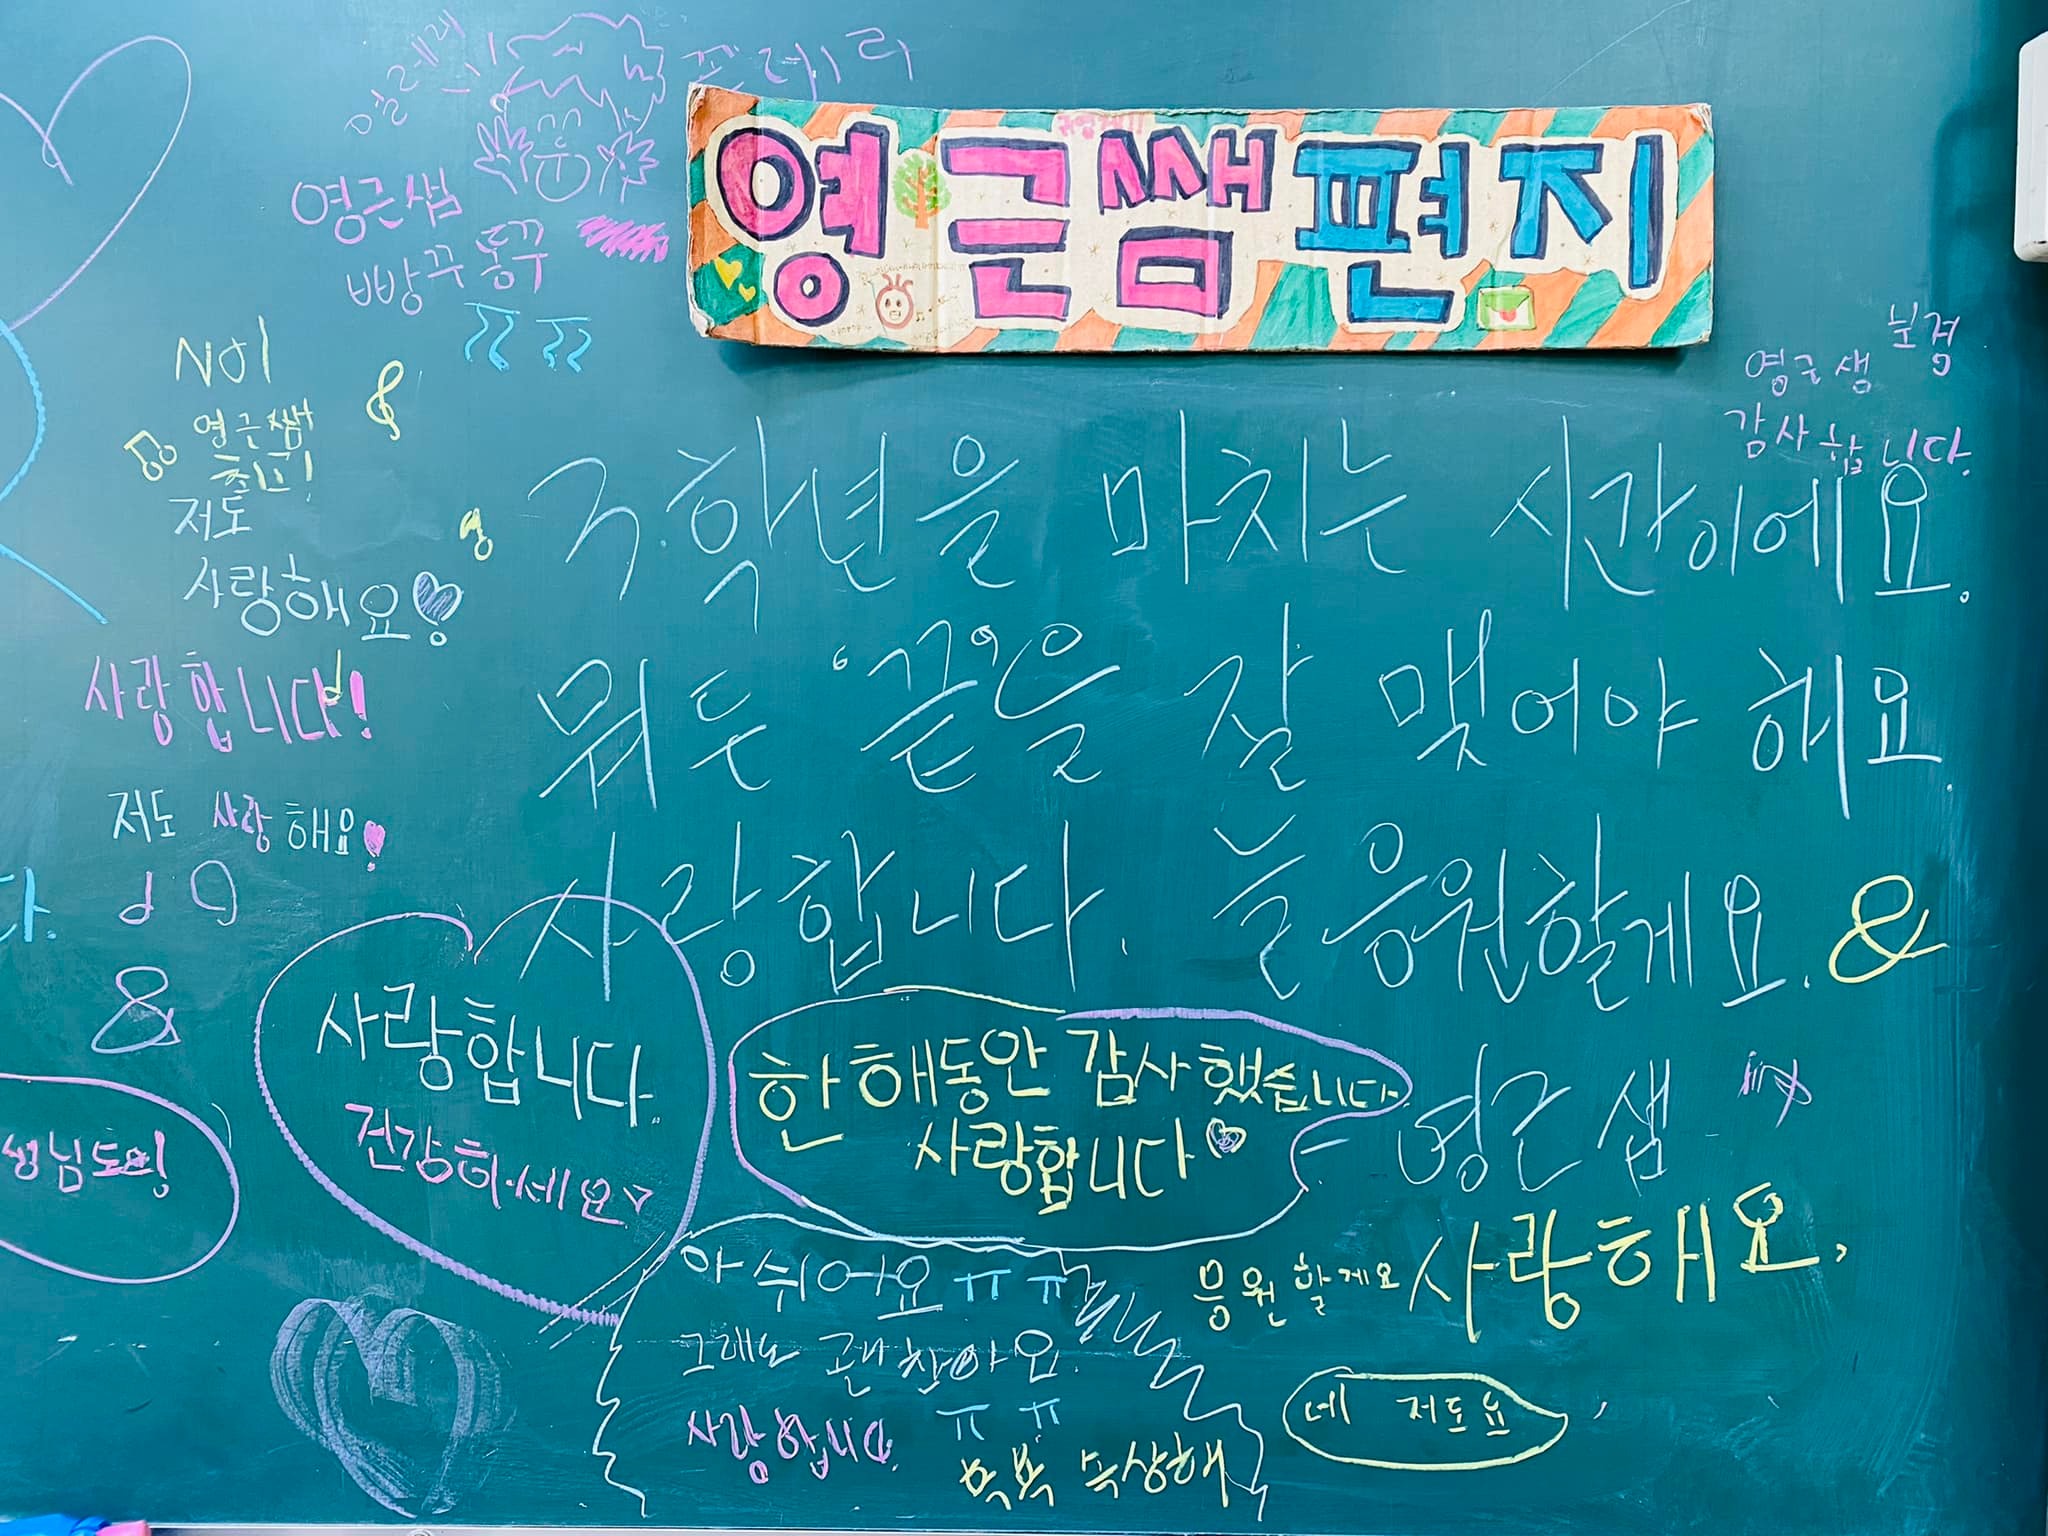 영근쌤 편지
영근샘
빵꾸똥꾸
ㅠㅠ
NO!
영근쌤
최고!
저도
사랑해요
사랑합니다!
저도 사랑해요
영근샘
감사합니다.
학년을 마치는 시간이에요.
뭐든 '끝'을 잘 맺어야 해요
사랑합니다. 늘 응원할게요. &
- 영근 샘 -
&
사랑합니다.
건강하세요
한 해동안 감사했습니다.
사랑합니다
생님도요!
아쉬어요 ㅠㅠ
그래도 괜찮아요.
사랑합니다.
ㅠㅠ
속상해
응원할게요 사랑해요,
네 저도요